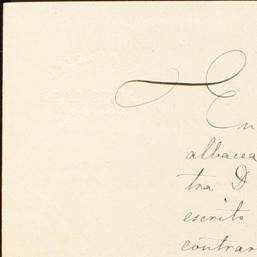 En
albacea
tra D
escrito
contrar